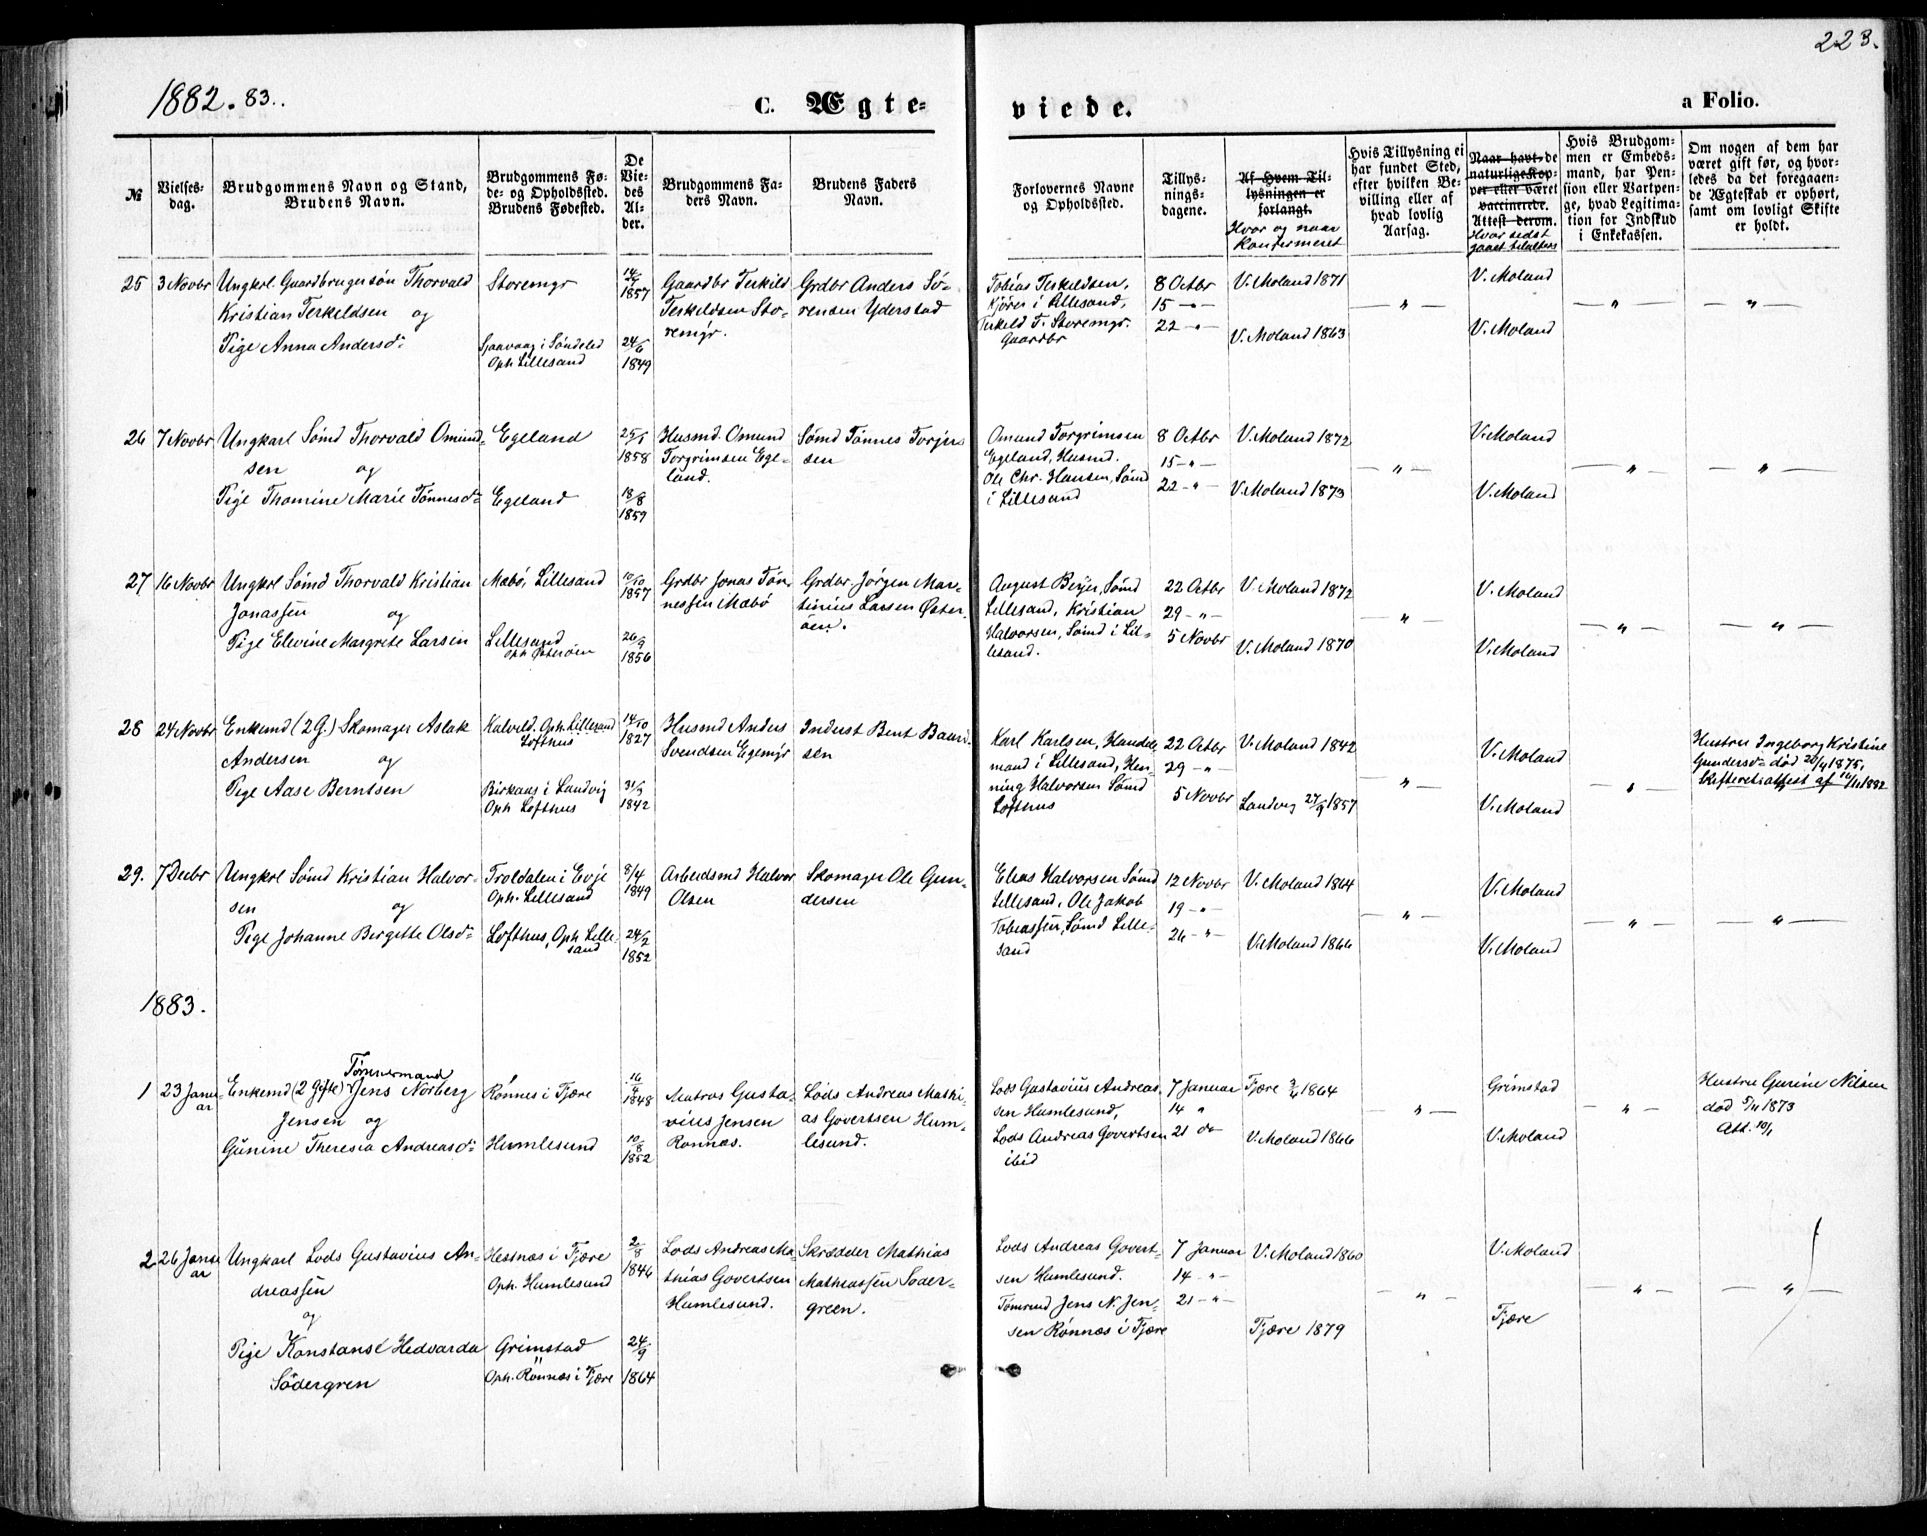 223.
1882. 83..
C. Ægte-
viede.
a Folio.
№
Vielses-
dag.
Brudgommens Navn og Stand,
Brudens Navn.
Brudgommens Fø-
de- og Opholdssted.
Brudens Fødested.
De
Vie-
des
Al-
der.
Brudgommens Fa-
ders Navn.
Brudens Faders
Navn.
Forlovernes Navne
og Opholdssted.
Tillys-
nings-
dagene.
Af Hvem Til-
lysningen er
forlangt.
Hvor og naar
Konfirmeret
Hvis Tillysning ei
har fundet Sted,
efter hvilken Be-
villing eller af
hvad lovlig
Aarsag.
Naar havt de
naturlige Kop-
per eller været
vaccinerede.
Attest derom.
Hvor sidst
gaaet til alters
Hvis Brudgom-
men er Embeds-
mand, har Pen-
sion eller Vartpen-
ge, hvad Legitima-
tion for Indskud
i Enkekassen.
Om nogen af dem har
været gift før, og hvor-
ledes da det foregaaen-
de Ægteskab er ophørt,
samt om lovligt Skifte
er holdt.
25 3 Novbr Ungkrl. Gaardbrugersøn Thorvald
Kristian Terkildsen og
Pige Anna Andersdr
Storemyr
Sjaavaag i Søndeled
Oph. Lillesand
1857
24/6
1849
Gaardbr Terkild
Terkildsen Sto-
remyr.
Grdbr Anders Sø-
rensen Yderstad
Tobias Terkildsen,
Kjører i Lillesand,
Terkild T. Storemyr.
Gaardbr
8 Octbr
15 - " -
22 - " -
V. Moland 1871
V. Moland 1863
"
V. Moland
V. Moland
"
"
26 7 Novbr Ungkarl Sømd Thorvald Omund-
sen og
Pige Thomine Marie Tønnesdr
Egeland
Egeland
25/1
1858
18/8
1859
Husmd. Omund
Torgrimsen Ege-
land.
Sømd Tønnes Torjus-
sen
Omund Torgrimsen
Egeland, Husmd.
Ole Chr. Hansen, Sømd
i Lillesand
8 Octbr
15 - " -
22 - " -
V. Moland 1872
V. Moland 1873
"
V. Moland
V. Moland
"
"
27 16 Novbr Ungkrl Sømd Thorvald Kristian
Jonassen og
Pige Elevine Margrete Larsen
Mæbø, Lillesand
Lillesand
Oph. Østerøen
10/10
1857
26/9
1856
Grdbr Jonas Tøn-
nessen Mæbø
Grdbr. Jörgen Mar-
tinius Larsen Øster-
øen.
August Beyer, Sømd
Lillesand, Kristian
Halvorsen, Sømd i Lil-
lesand.
22 Octbr
29 - " -
5 Novbr
V. Moland 1872
V. Moland 1870
"
V. Moland
V. Moland
"
"
28 24 Novbr Enkemd (2 G.) Skomager Aslak
Andersen og
Pige Aase Berntsen
Kalveld. Oph. Lillesand
Lofthus
Birkaas i Landvig
Oph. Lofthus
14/10
1827
1842
Husmd Anders
Svendsen Egemyr
Inderst Bent Bauri-
sen
Karl Karlsen, Handels-
mand i Lillesand, Hen-
ning Halvorsen Sømd
Lofthus
22 Octbr
29 - " -
5 Novbr
V. Moland 1842
Landvig 27/9 1857
"
V. Moland
V. Moland
"
Hustru Ingeborg Kristine
Gundersdr død 20/4 1875,
Skifteretsattest af 14/11 1882
29. 7 Decbr Ungkrl Sømd Kristian Halvor-
sen og
Pige Johanne Birgitte Olsdr
Troldalen i Evje
Oph. Lillesand
Lofthus, Oph. Lille-
sand
8/4
1849
24/2
1852
Arbeidsmd Halvor
Olsen
Skomager Ole Gun-
dersen
Elias Halvorsen Sømd
Lillesand, Ole Jakob
Tobiassen, Sømd Lille-
sand
12 Novbr
19 - " -
26 - " -
V. Moland 1864
V. Moland 1866
"
V. Moland
V. Moland
"
"
1883.
1 23 Janu-
ar
Tømmermand
Enkemd (2 Gifte) Jens Norberg
Jensen og
Gunine Theresia Andreasdr
Rønnes i Fjære
Humlesund
16/4
1848
10/8
1852
Matros Gusta-
vius Jensen
Rønnæs.
Lods Andreas Mathi-
as Govertsen Hum-
lesund.
Lods Gustavius Andreas-
sen Humlesund,
Lods Andreas Govertsen
ibid
7 Januar
14 "
21 do
Fjære 1864
V. Moland 1866
"
Grimstad
V. Moland
"
Hustru Gurine Nilsen
død 5/11 1873
Att. 10/1
2 26 Janu-
ar
Ungkarl Lods Gustavius An-
dreassen
og
Pige Konstanse Hedvarda
Södergren
Hestnæs i Fjære
Oph. Humlesund
Grimstad
Oph. Rönnæs i Fjære
2/8
1846
24/9
1864
Lods Andreas Ma-
thias Govertsen
Humlesund.
Skrædder Mathias
Mathiassen Söder-
green.
Lods Andreas Govert-
sen Humlesund.
Tømmd Jens N. Jen-
sen Rønnæs i Fjære
7 Januar
14 - " -
21 - " -
V. Moland 1860
Fjære 1879
"
V. Moland
Fjære
"
"